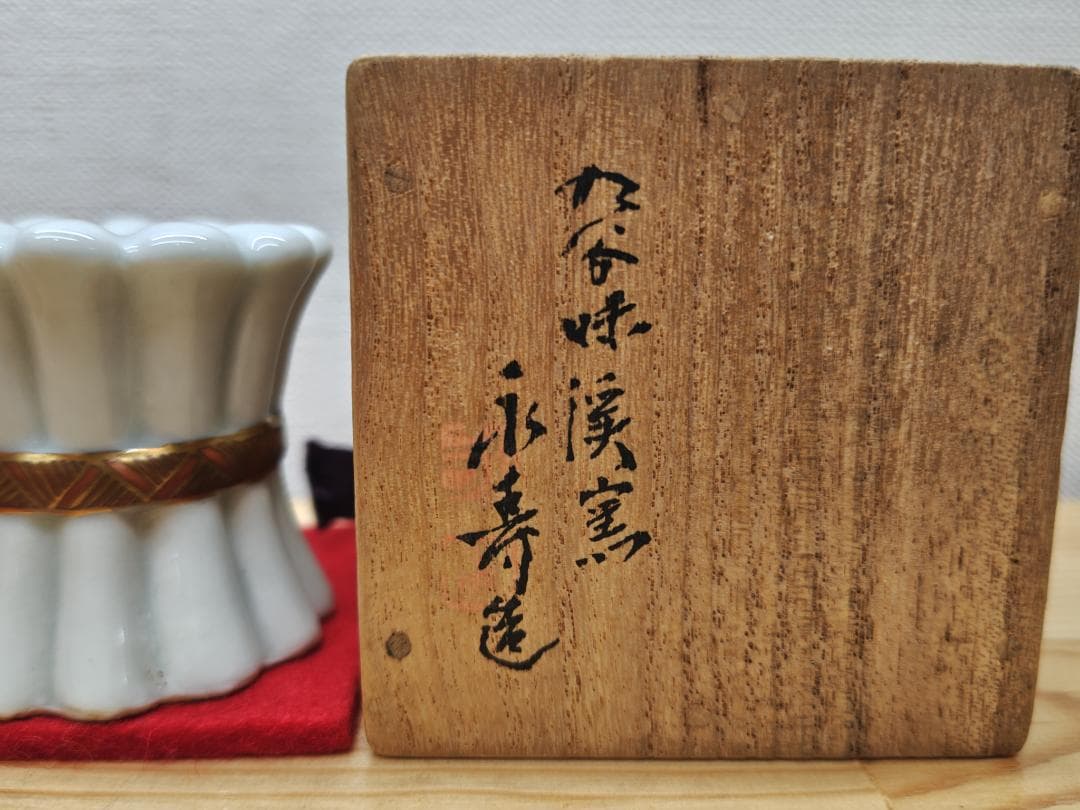 九谷味溪窯
永寿造